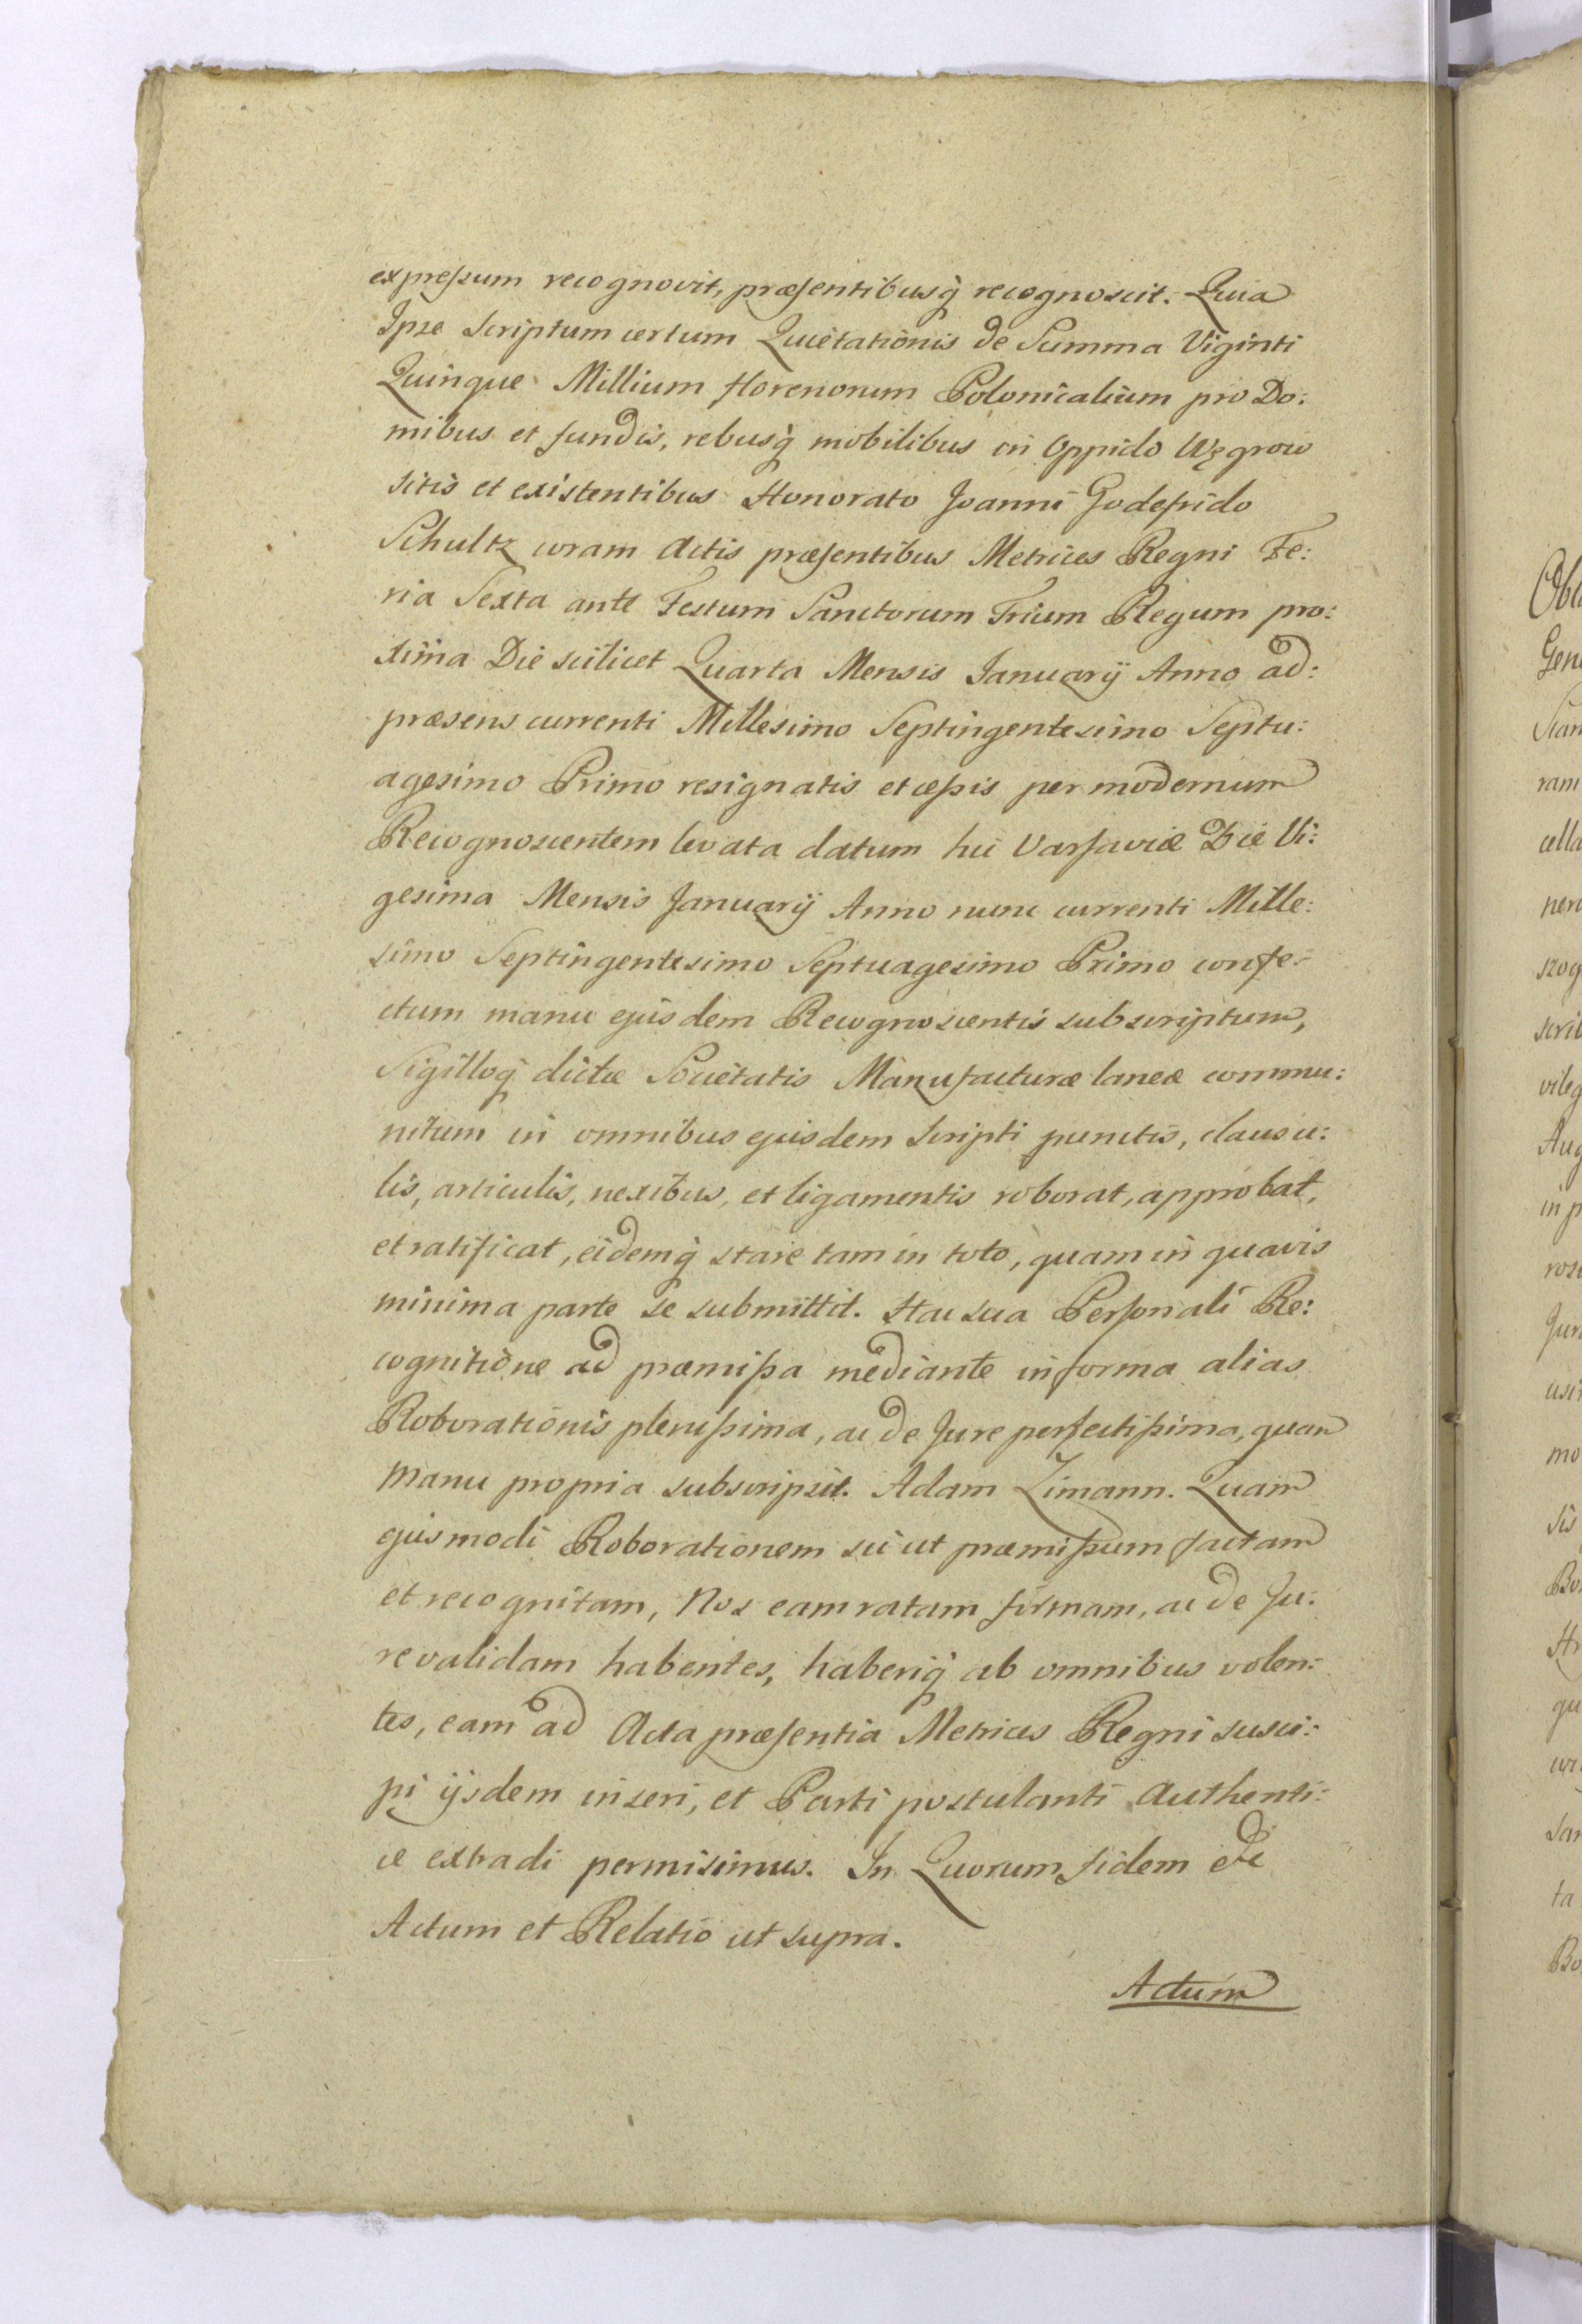 expressum recognovit, præsentibusq̀ recognoscit. Quia
Ipse Scriptum certum Quietationis de Summa Viginti
Quinque Millium florenorum Polonicalium pro Do:
mibus et fundis, rebusq̀ mobilibus in Oppido Węgrow
sitis et existentibus Honorato Joanni Godefrido
Schultz coram Actis præsentibus Metrices Regni Fe:
ria Sexta ante Festum Sanctorum Trium Regum pro:
xima Die scilicet Quarta Mensis Januarij Anno ad:
præsens currenti Millesimo Septingentesimo Septu:
agesimo Primo resignatis et cessis per modernum
Recognoscentem levata datum hic Varsaviæ Die Vi:
gesima Mensis Januarij Anno nunc currenti Mille:
simo Septingentesimo Septuagesimo Primo confe:
ctum manu ejusdem Recognoscentis subscriptum,
Sigilloq̀ dictæ Societatis Manufacturæ laneæ commu:
nitum in omnibus ejusdem Scripti punctis, clausu:
lis, articulis, nexibus, et ligamentis roborat, approbat,
et ratificat, eidemq̀ stare tam in toto, quam in quavis
minima parte se submittit. Hac sua Personali Re:
cognitione ad præmissa mediante in forma alias
Roborationis plenissima, ac de Jure perfectissima, quam
manu propria subscripsit. Adam Zimann. Quam
ejusmodi Roborationem sic ut præmissum factam
et recognitam, Nos eam ratam firmam, ac de Ju:
re validam habentes, haberiq̀ ab omnibus volen:
tes, eam ad Acta præsentia Metrices Regni susci:
pi ijsdem inseri, et Parti postulanti Authenti:
ce extradi permisimus. In Quorum fidem &c
Actum et Relatio ut supra.
Actum